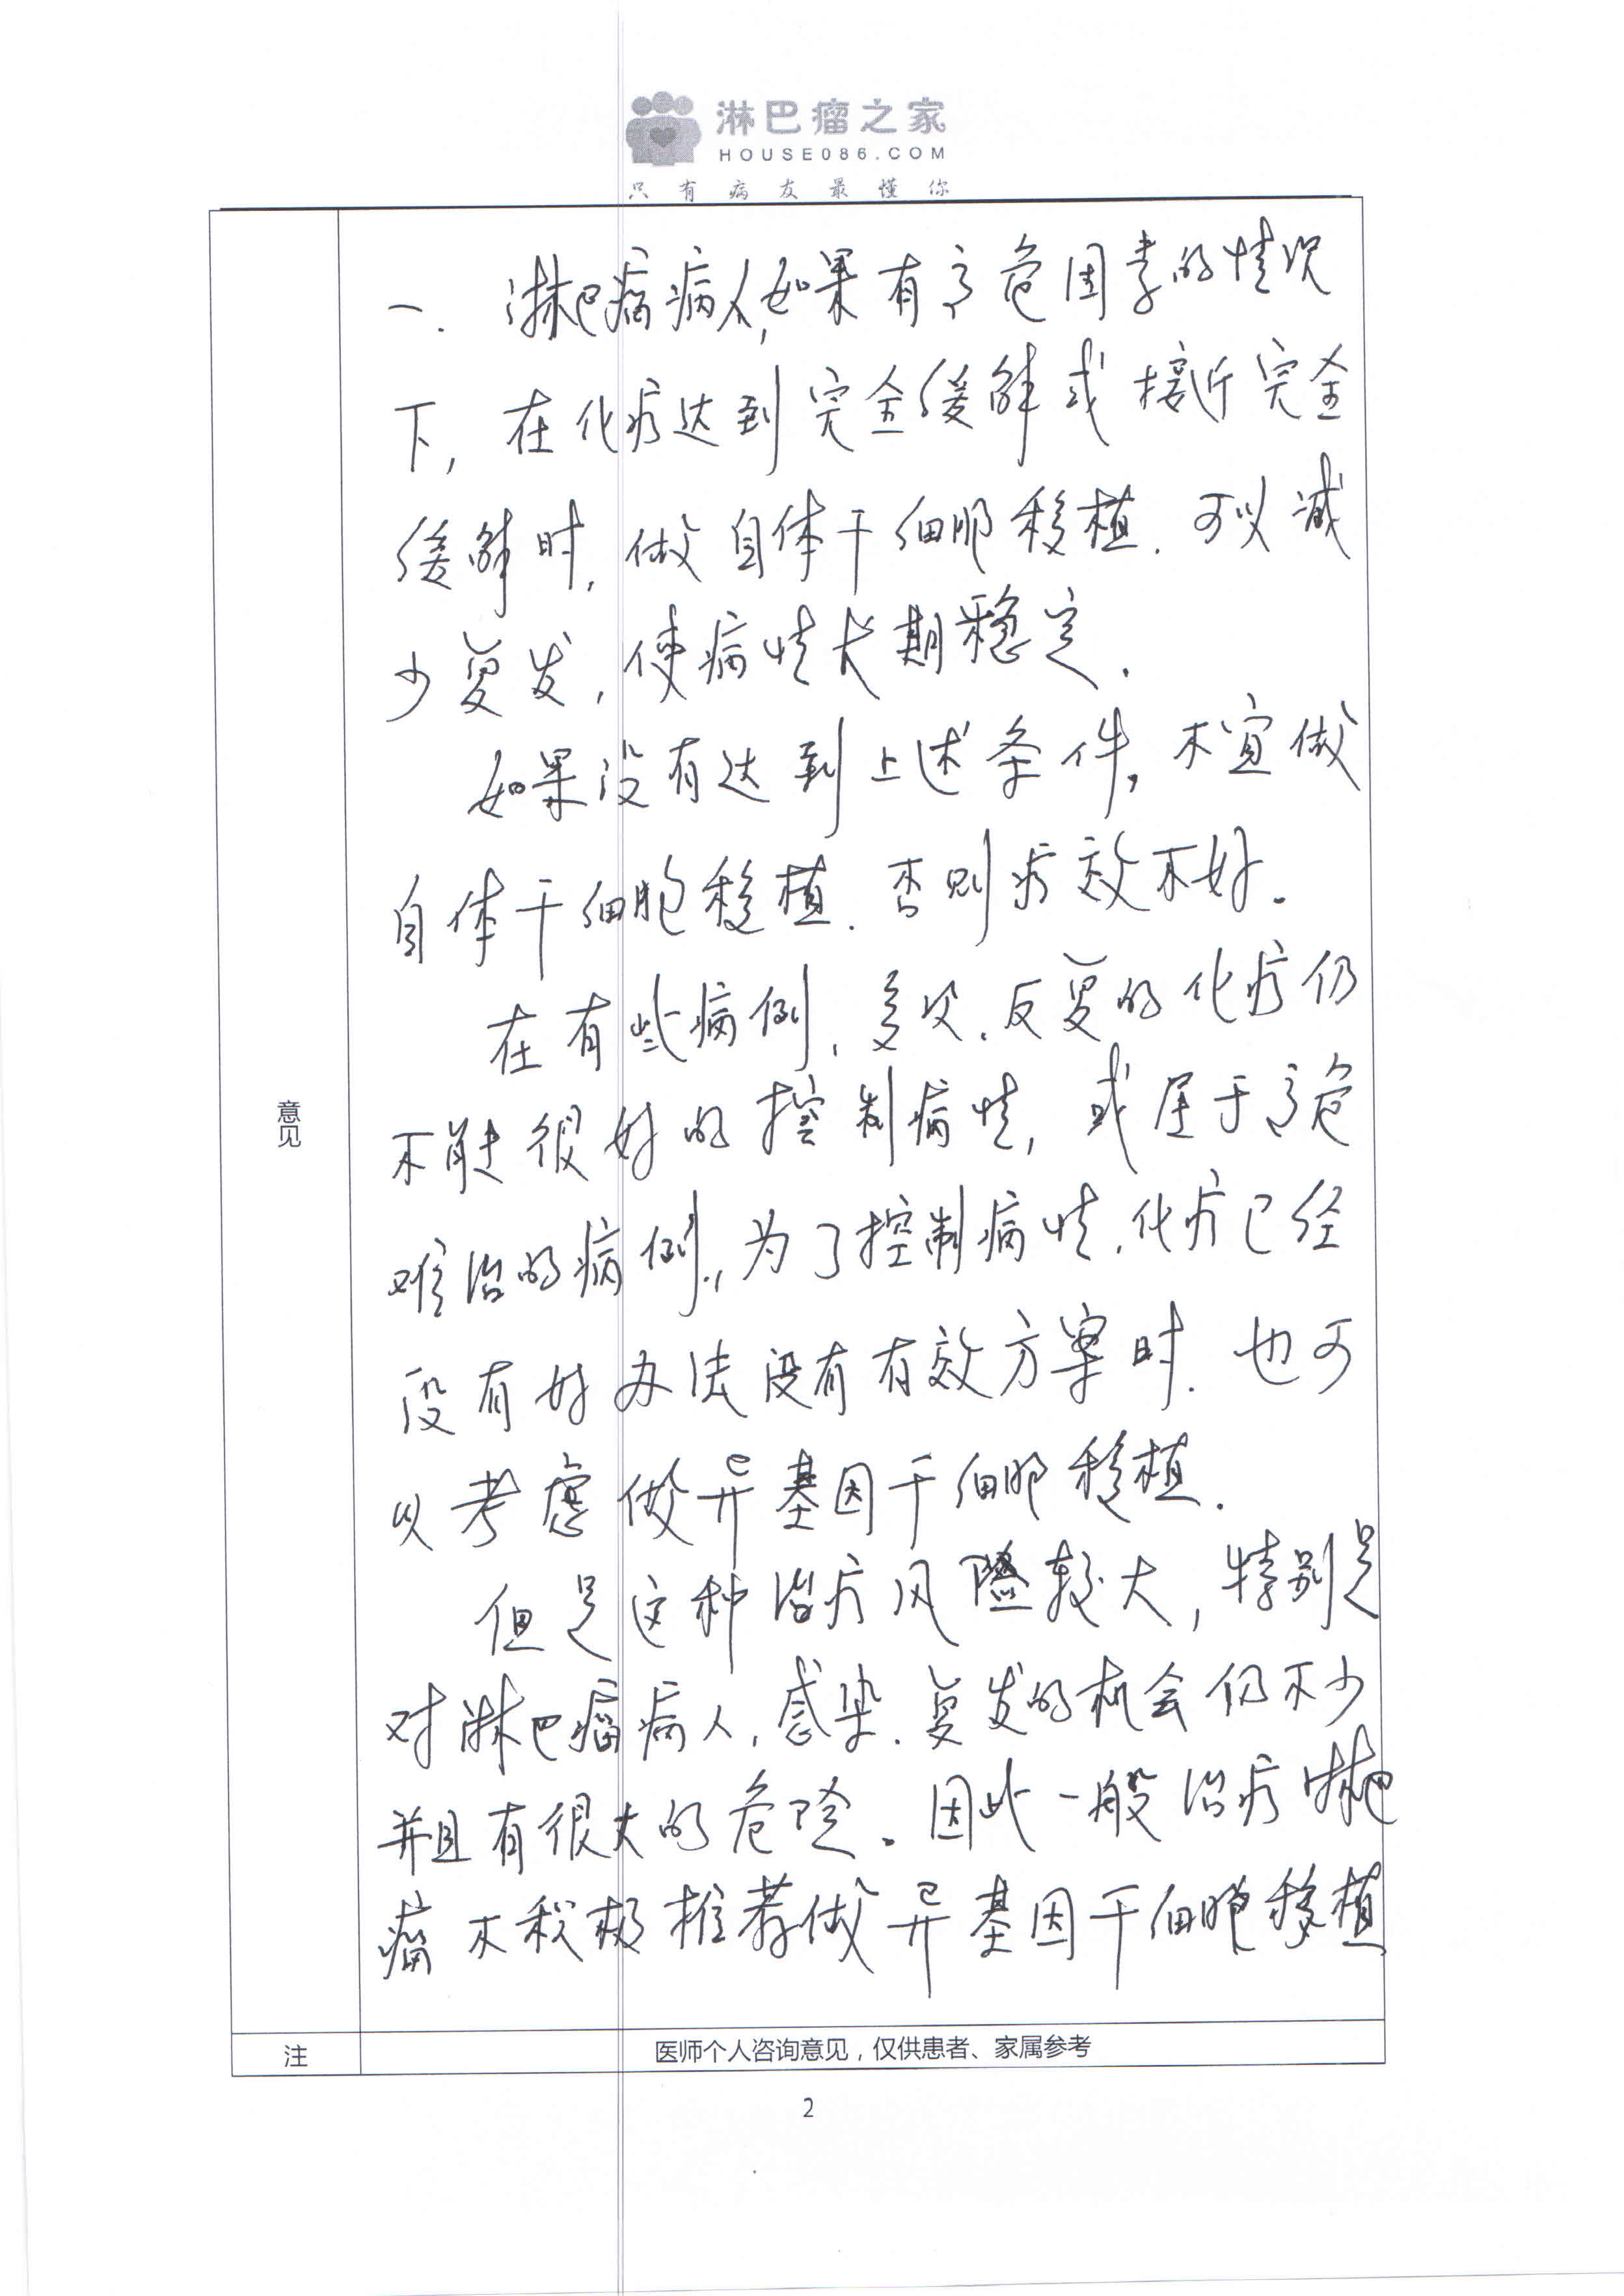 淋巴瘤之家
HOUSE086.COM
只有病友最懂你
一. 淋巴瘤病人,如果有高危因素的情况
下, 在化疗达到完全缓解或接近完全
缓解时, 做自体干细胞移植. 可以减
少复发, 使病情长期稳定.
如果没有达到上述条件, 不宜做
自体干细胞移植. 否则疗效不好.
在有些病例, 多次.反复的化疗仍
不能很好的控制病情, 或属于高危
难治的病例, 为了控制病情, 化疗已经
没有好办法没有有效方案时. 也可
以考虑做异基因干细胞移植.
但是这种治疗风险较大, 特别是
对淋巴瘤病人, 感染. 复发的机会仍不少
并且有很大的危险. 因此一般治疗淋巴
瘤不积极推荐做异基因干细胞移植
意见
注
医师个人咨询意见，仅供患者、家属参考
2